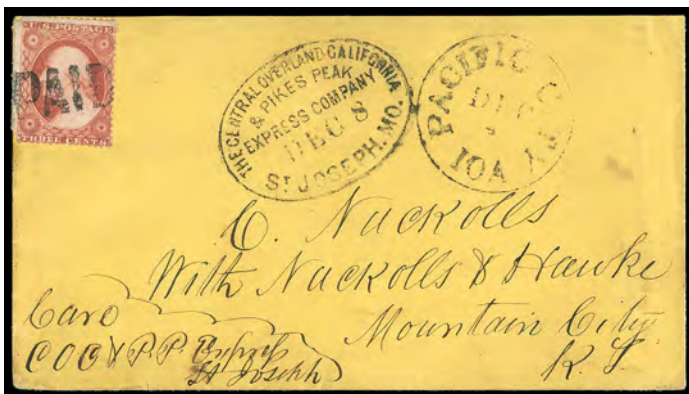 U.S. POSTAGE
PAID
THREE CENTS
THE CENTRAL OVERLAND CALIFORNIA
& PIKES PEAK
EXPRESS COMPANY
DEC 8
ST JOSEPH. MO.
PACIFIC CITY
DEC
IOA
C. Nuckolls
With Nuckolls & Hawke
Mountain City
K. T.
Care
C O C & P. P. Express
St Joseph